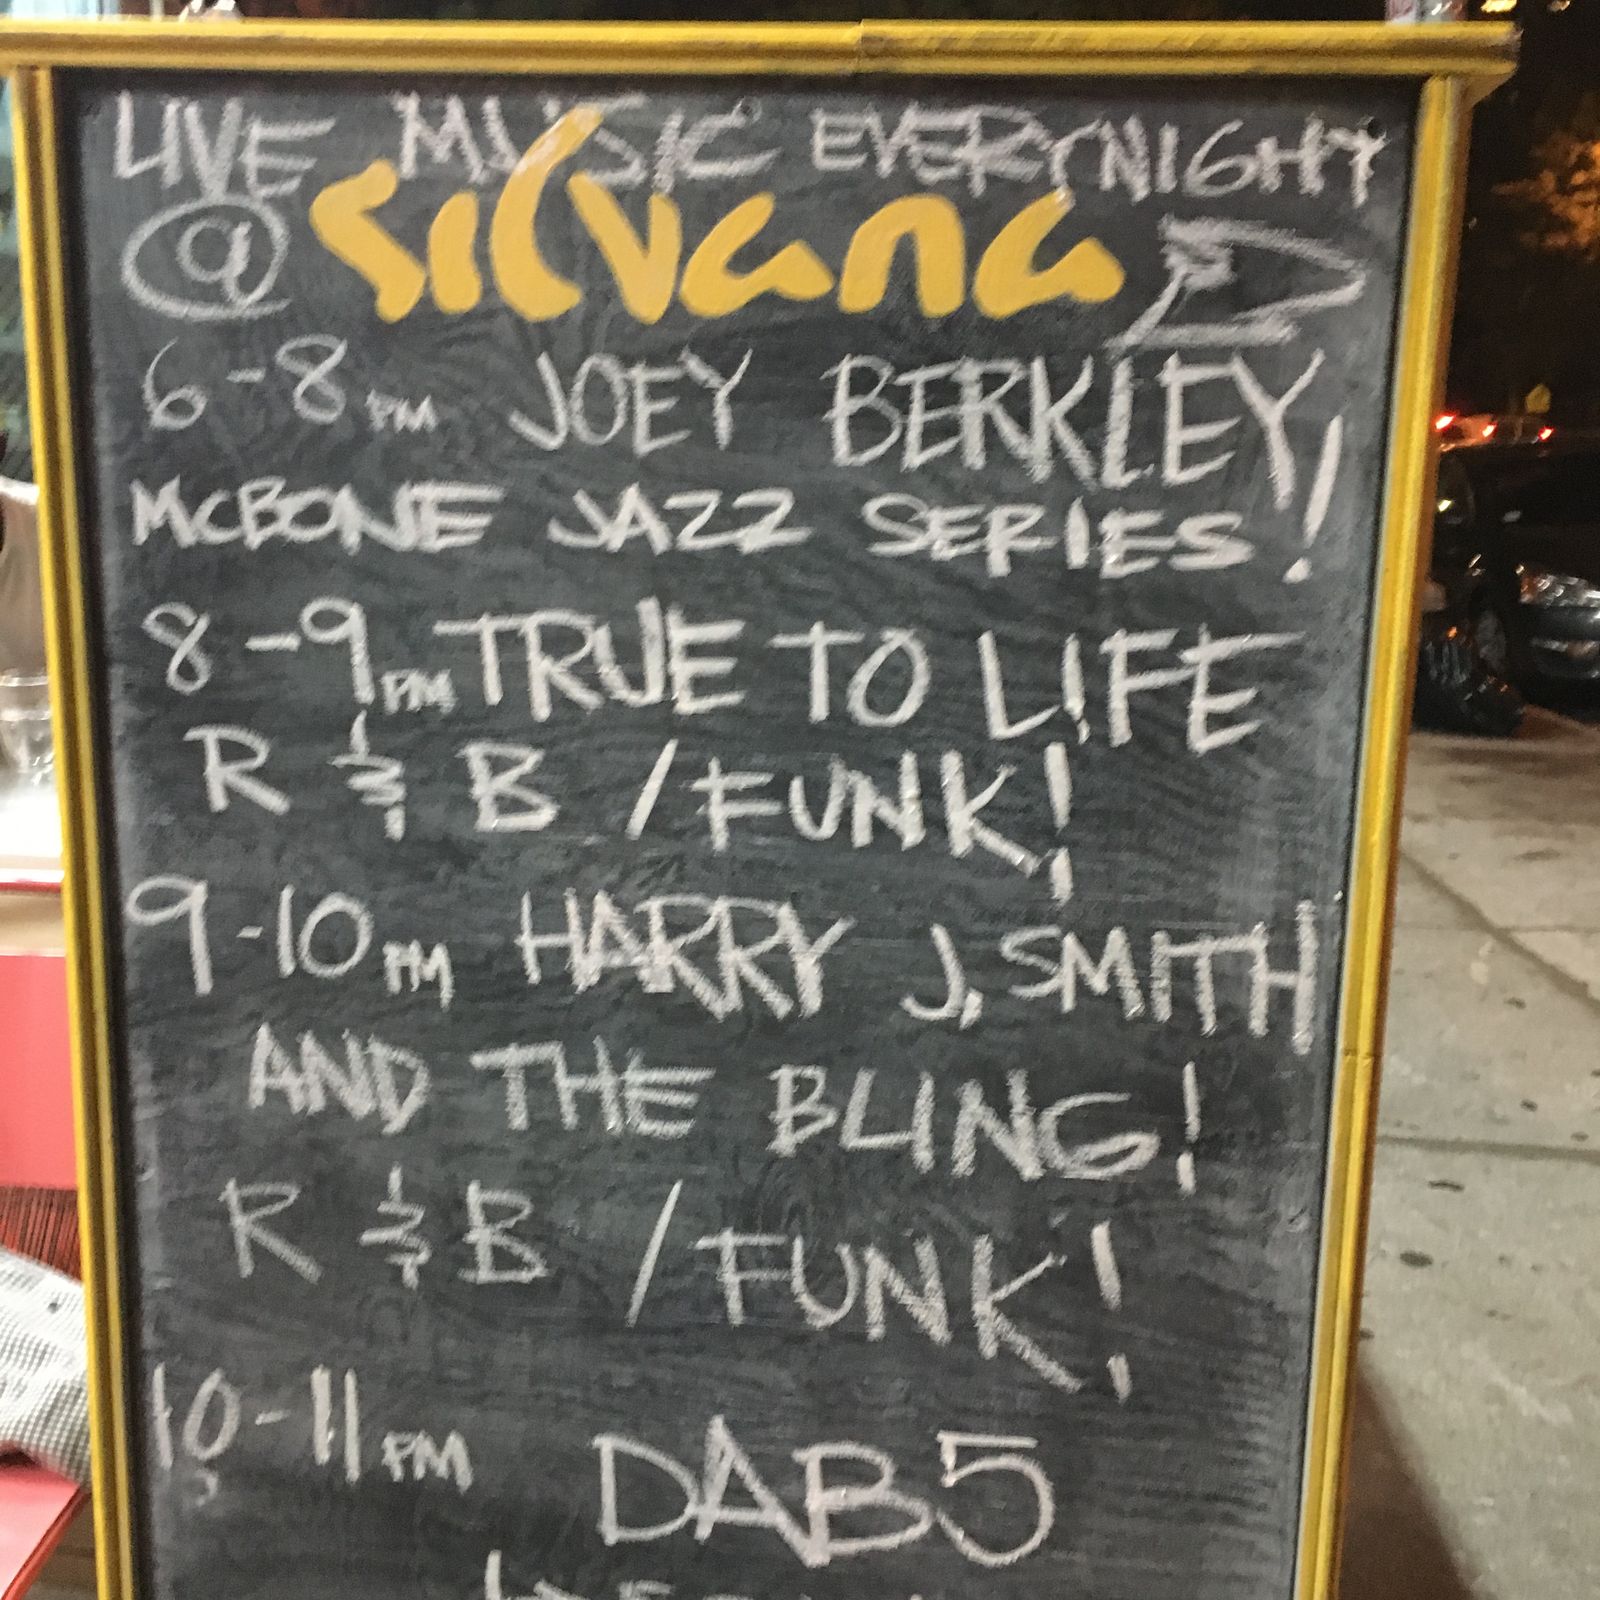 LIVE MUSIC EVERYNIGHT
@ silvana
6-8PM JOEY BERKLEY!
McBONE JAZZ SERIES!
8-9PM TRUE TO LIFE
R & B / FUNK!
9-10PM HARRY J. SMITH
AND THE BLING!
R & B / FUNK!
10-11PM DAB5